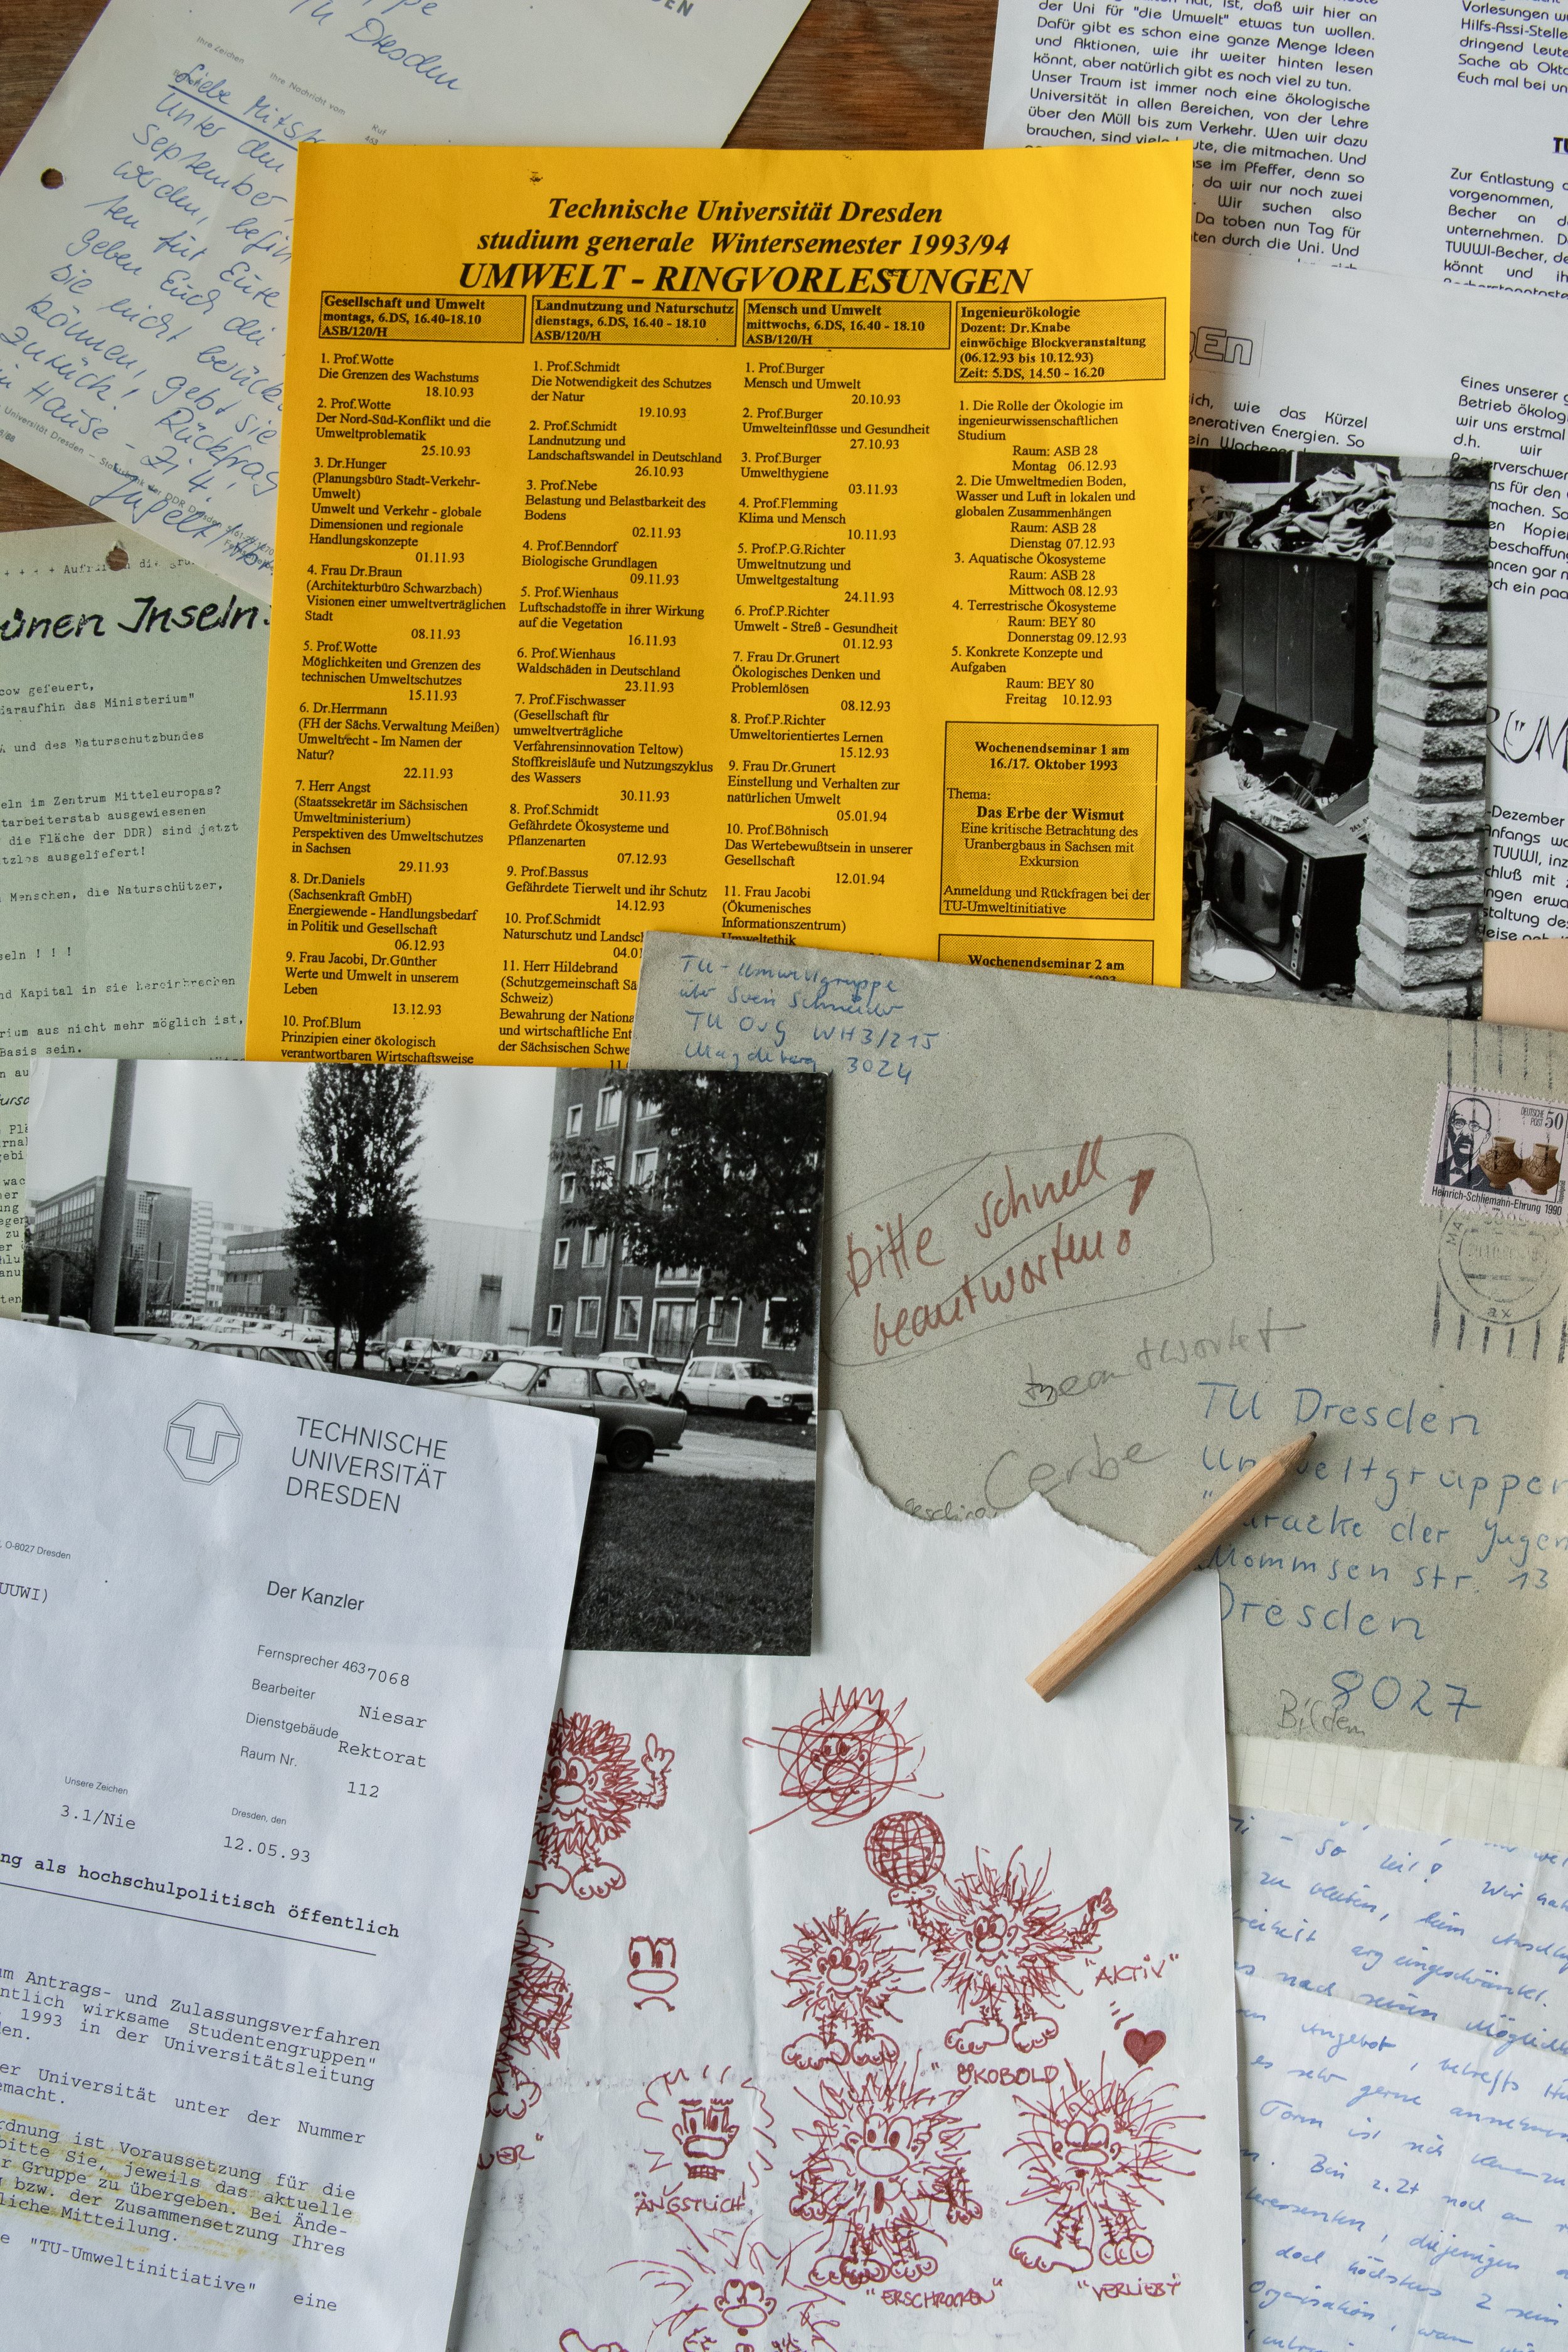 TU Dresden
Ihre Zeichen
Ihre Nachricht vom
Ruf
Liebe
Unter den
September
werden,
ten für Eure
geben Euch die
sie nicht
können, gebt sie
zurück! Rückfrag
Hause - Zi 4.
der Uni für "die Umwelt" etwas tun wollen.
Dafür gibt es schon eine ganze Menge Ideen
und Aktionen, wie ihr weiter hinten lesen
könnt, aber natürlich gibt es noch viel zu tun.
Unser Traum ist immer noch eine ökologische
Universität in allen Bereichen, von der Lehre
über den Müll bis zum Verkehr. Wen wir dazu
brauchen, sind viele Leute, die mitmachen. Und
se im Pfeffer, denn so
da wir nur noch zwei
Wir suchen also
Da toben nun Tag für
ten durch die Uni. Und
Vorlesungen
Hilfs-Assi-Stelle
dringend Leute
Sache ab Okt
Euch mal bei un
TU
Zur Entlastung
vorgenommen,
Becher an d
unternehmen. D
TUUWI-Becher, de
könnt und ih
gEn
ich, wie das Kürzel
enerativen Energien. So
ein
Eines unserer
Betrieb ökolog
wir uns erstmal
d.h. wir
ierverschwe
ns für den
machen. So
en Kopie
beschaffung
ancen gar n
ch ein paa
RÜM
-Dezember
Anfangs wa
TUUWI, inz
chluß mit
ngen erwa
staltung des
Technische Universität Dresden
studium generale Wintersemester 1993/94
UMWELT - RINGVORLESUNGEN
Gesellschaft und Umwelt
montags, 6.DS, 16.40-18.10
ASB/120/H
1. Prof.Wotte
Die Grenzen des Wachstums
18.10.93
2. Prof.Wotte
Der Nord-Süd-Konflikt und die
Umweltproblematik
25.10.93
3. Dr.Hunger
(Planungsbüro Stadt-Verkehr-
Umwelt)
Umwelt und Verkehr - globale
Dimensionen und regionale
Handlungskonzepte
01.11.93
4. Frau Dr.Braun
(Architekturbüro Schwarzbach)
Visionen einer umweltverträglichen
Stadt
08.11.93
5. Prof.Wotte
Möglichkeiten und Grenzen des
technischen Umweltschutzes
15.11.93
6. Dr.Herrmann
(FH der Sächs.Verwaltung Meißen)
Umweltrecht - Im Namen der
Natur?
22.11.93
7. Herr Angst
(Staatssekretär im Sächsischen
Umweltministerium)
Perspektiven des Umweltschutzes
in Sachsen
29.11.93
8. Dr.Daniels
(Sachsenkraft GmbH)
Energiewende - Handlungsbedarf
in Politik und Gesellschaft
06.12.93
9. Frau Jacobi, Dr.Günther
Werte und Umwelt in unserem
Leben
13.12.93
10. Prof.Blum
Prinzipien einer ökologisch
verantwortbaren Wirtschaftsweise
Landnutzung und Naturschutz
dienstags, 6.DS, 16.40 - 18.10
ASB/120/H
1. Prof.Schmidt
Die Notwendigkeit des Schutzes
der Natur
19.10.93
2. Prof.Schmidt
Landnutzung und
Landschaftswandel in Deutschland
26.10.93
3. Prof.Nebe
Belastung und Belastbarkeit des
Bodens
02.11.93
4. Prof.Benndorf
Biologische Grundlagen
09.11.93
5. Prof.Wienhaus
Luftschadstoffe in ihrer Wirkung
auf die Vegetation
16.11.93
6. Prof.Wienhaus
Waldschäden in Deutschland
23.11.93
7. Prof.Fischwasser
(Gesellschaft für
umweltverträgliche
Verfahrensinnovation Teltow)
Stoffkreisläufe und Nutzungszyklus
des Wassers
30.11.93
8. Prof.Schmidt
Gefährdete Ökosysteme und
Pflanzenarten
07.12.93
9. Prof.Bassus
Gefährdete Tierwelt und ihr Schutz
14.12.93
10. Prof.Schmidt
Naturschutz und Landsc
04.01
11. Herr Hildebrand
(Schutzgemeinschaft Sä
Schweiz)
Bewahrung der Nationa
und wirtschaftliche Ent
der Sächsischen Schwe
11
Mensch und Umwelt
mittwochs, 6.DS, 16.40 - 18.10
ASB/120/H
1. Prof.Burger
Mensch und Umwelt
20.10.93
2. Prof.Burger
Umwelteinflüsse und Gesundheit
27.10.93
3. Prof.Burger
Umwelthygiene
03.11.93
4. Prof.Flemming
Klima und Mensch
10.11.93
5. Prof.P.G.Richter
Umweltnutzung und
Umweltgestaltung
24.11.93
6. Prof.P.Richter
Umwelt - Streß - Gesundheit
01.12.93
7. Frau Dr.Grunert
Ökologisches Denken und
Problemlösen
08.12.93
8. Prof.P.Richter
Umweltorientiertes Lernen
15.12.93
9. Frau Dr.Grunert
Einstellung und Verhalten zur
natürlichen Umwelt
05.01.94
10. Prof.Böhnisch
Das Wertebewußtsein in unserer
Gesellschaft
12.01.94
11. Frau Jacobi
(Ökumenisches
Informationszentrum)
Umweltethik
Ingenieurökologie
Dozent: Dr.Knabe
einwöchige Blockveranstaltung
(06.12.93 bis 10.12.93)
Zeit: 5.DS, 14.50 - 16.20
1. Die Rolle der Ökologie im
ingenieurwissenschaftlichen
Studium
Raum: ASB 28
Montag 06.12.93
2. Die Umweltmedien Boden,
Wasser und Luft in lokalen und
globalen Zusammenhängen
Raum: ASB 28
Dienstag 07.12.93
3. Aquatische Ökosysteme
Raum: ASB 28
Mittwoch 08.12.93
4. Terrestrische Ökosysteme
Raum: BEY 80
Donnerstag 09.12.93
5. Konkrete Konzepte und
Aufgaben
Raum: BEY 80
Freitag 10.12.93
Wochenendseminar 1 am
16./17. Oktober 1993
Thema:
Das Erbe der Wismut
Eine kritische Betrachtung des
Uranbergbaus in Sachsen mit
Exkursion
Anmeldung und Rückfragen bei der
TU-Umweltinitiative
Wochenendseminar 2 am
ünen Inseln:
cow gefeuert,
daraufhin das Ministerium"
und des Naturschutzbundes
eln im Zentrum Mitteleuropas?
tarbeiterstab ausgewiesenen
die Fläche der DDR) sind jetzt
tzlos ausgeliefert!
Menschen, die Naturschützer,
seln ! ! !
nd Kapital in sie hereinbrechen
rium aus nicht mehr möglich ist,
Basis sein.
TU-Umweltgruppe
über Sven Schneider
TU OvG WH3/215
Magdeburg 3024
bitte schnell
beantworten!
beantwortet
Cerbe
DEUTSCHE
POST 50
Heinrich-Schliemann-Ehrung 1990
TU Dresden
Umweltgruppen
"Baracke der Jugen
Mommsen str. 13
Dresden
8027
Bilden
TECHNISCHE
UNIVERSITÄT
DRESDEN
O-8027 Dresden
UUWI)
Der Kanzler
Fernsprecher 463 7068
Bearbeiter
Niesar
Dienstgebäude
Rektorat
Raum Nr.
112
Unsere Zeichen
3.1/Nie
Dresden, den
12.05.93
ng als hochschulpolitisch öffentlich
um Antrags- und Zulassungsverfahren
entlich wirksame Studentengruppen"
1993 in der Universitätsleitung
den.
er Universität unter der Nummer
emacht.
rdnung ist Voraussetzung für die
bitte Sie, jeweils das aktuelle
r Gruppe zu übergeben. Bei Ände-
g bzw. der Zusammensetzung Ihres
liche Mitteilung.
e "TU-Umweltinitiative" eine
"AKTIV"
"ÖKOBOLD"
UER"
"ÄNGSTLICH"
"ERSCHROCKEN"
"VERLIEBT"
so
zu bleiben, beim
arg eingeschränkt.
nach seinen
Angebot, betreffs
es sehr gerne annehmen
Form ist
Bin z.Zt noch
diejenigen
doch höchstens 2 sein
Organisation,